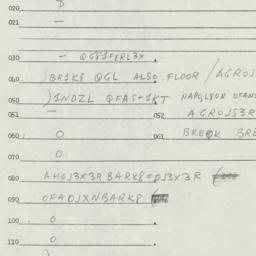 020
021 —
030 — QG81FERL3X
040 BR1K8 QGL ALSO FLOOR / AGROJ
050 )1NDZL QFAS+1KT NAPOLEON OFAN
051 — 052 AGROJS3R
060 O 061 BREQK BRE
070 O
080 AHOJ3X3RBARK8=DJ3X3R
090 OFADJXNBARK8
100 O
110 O